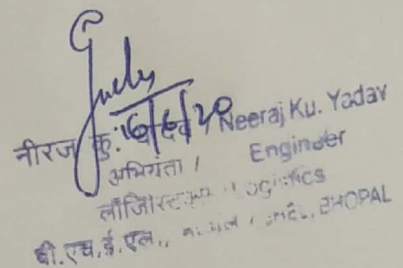 16/6/20
नीरज कु. यादव / Neeraj Ku. Yadav
अभियंता / Engineer
लॉजिस्टिक्स / Logistics
बी.एच.ई.एल., भोपाल / BHEL, BHOPAL